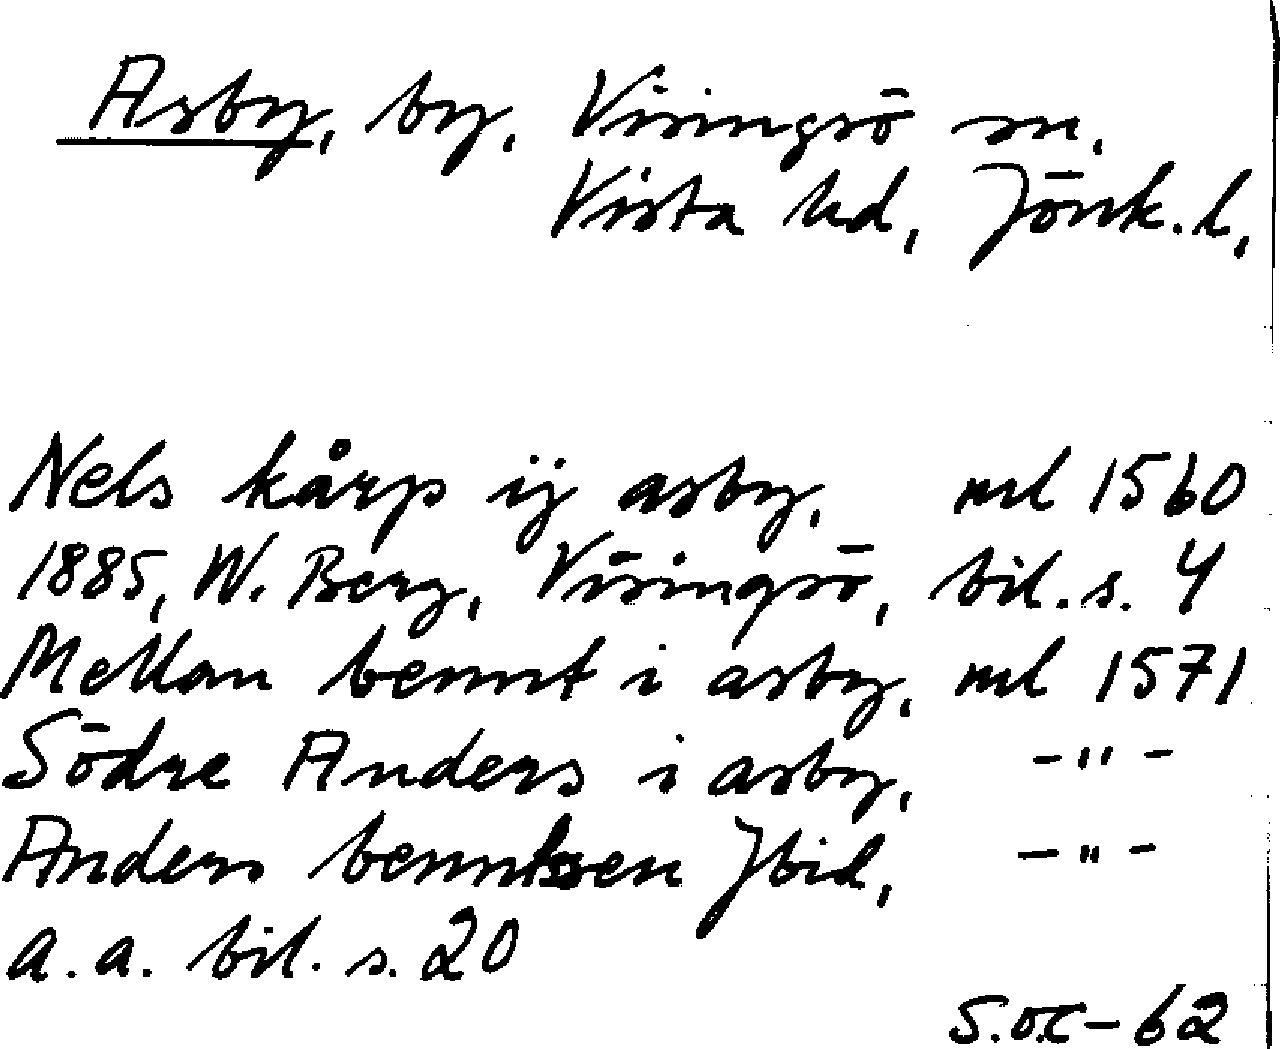 Asby, by, Visingsö sn,
Vista hd, Jönk. l,
Nels kårp ij asby, ml 1560
1885, W. Berg, Visingsö, bil. s. 4
Mellan bennt i asby, ml 1571
Södre Anders i asby, -"-
Anders benntssen Jbid, -"-
a. a. bil. s. 20
S.O.C-62